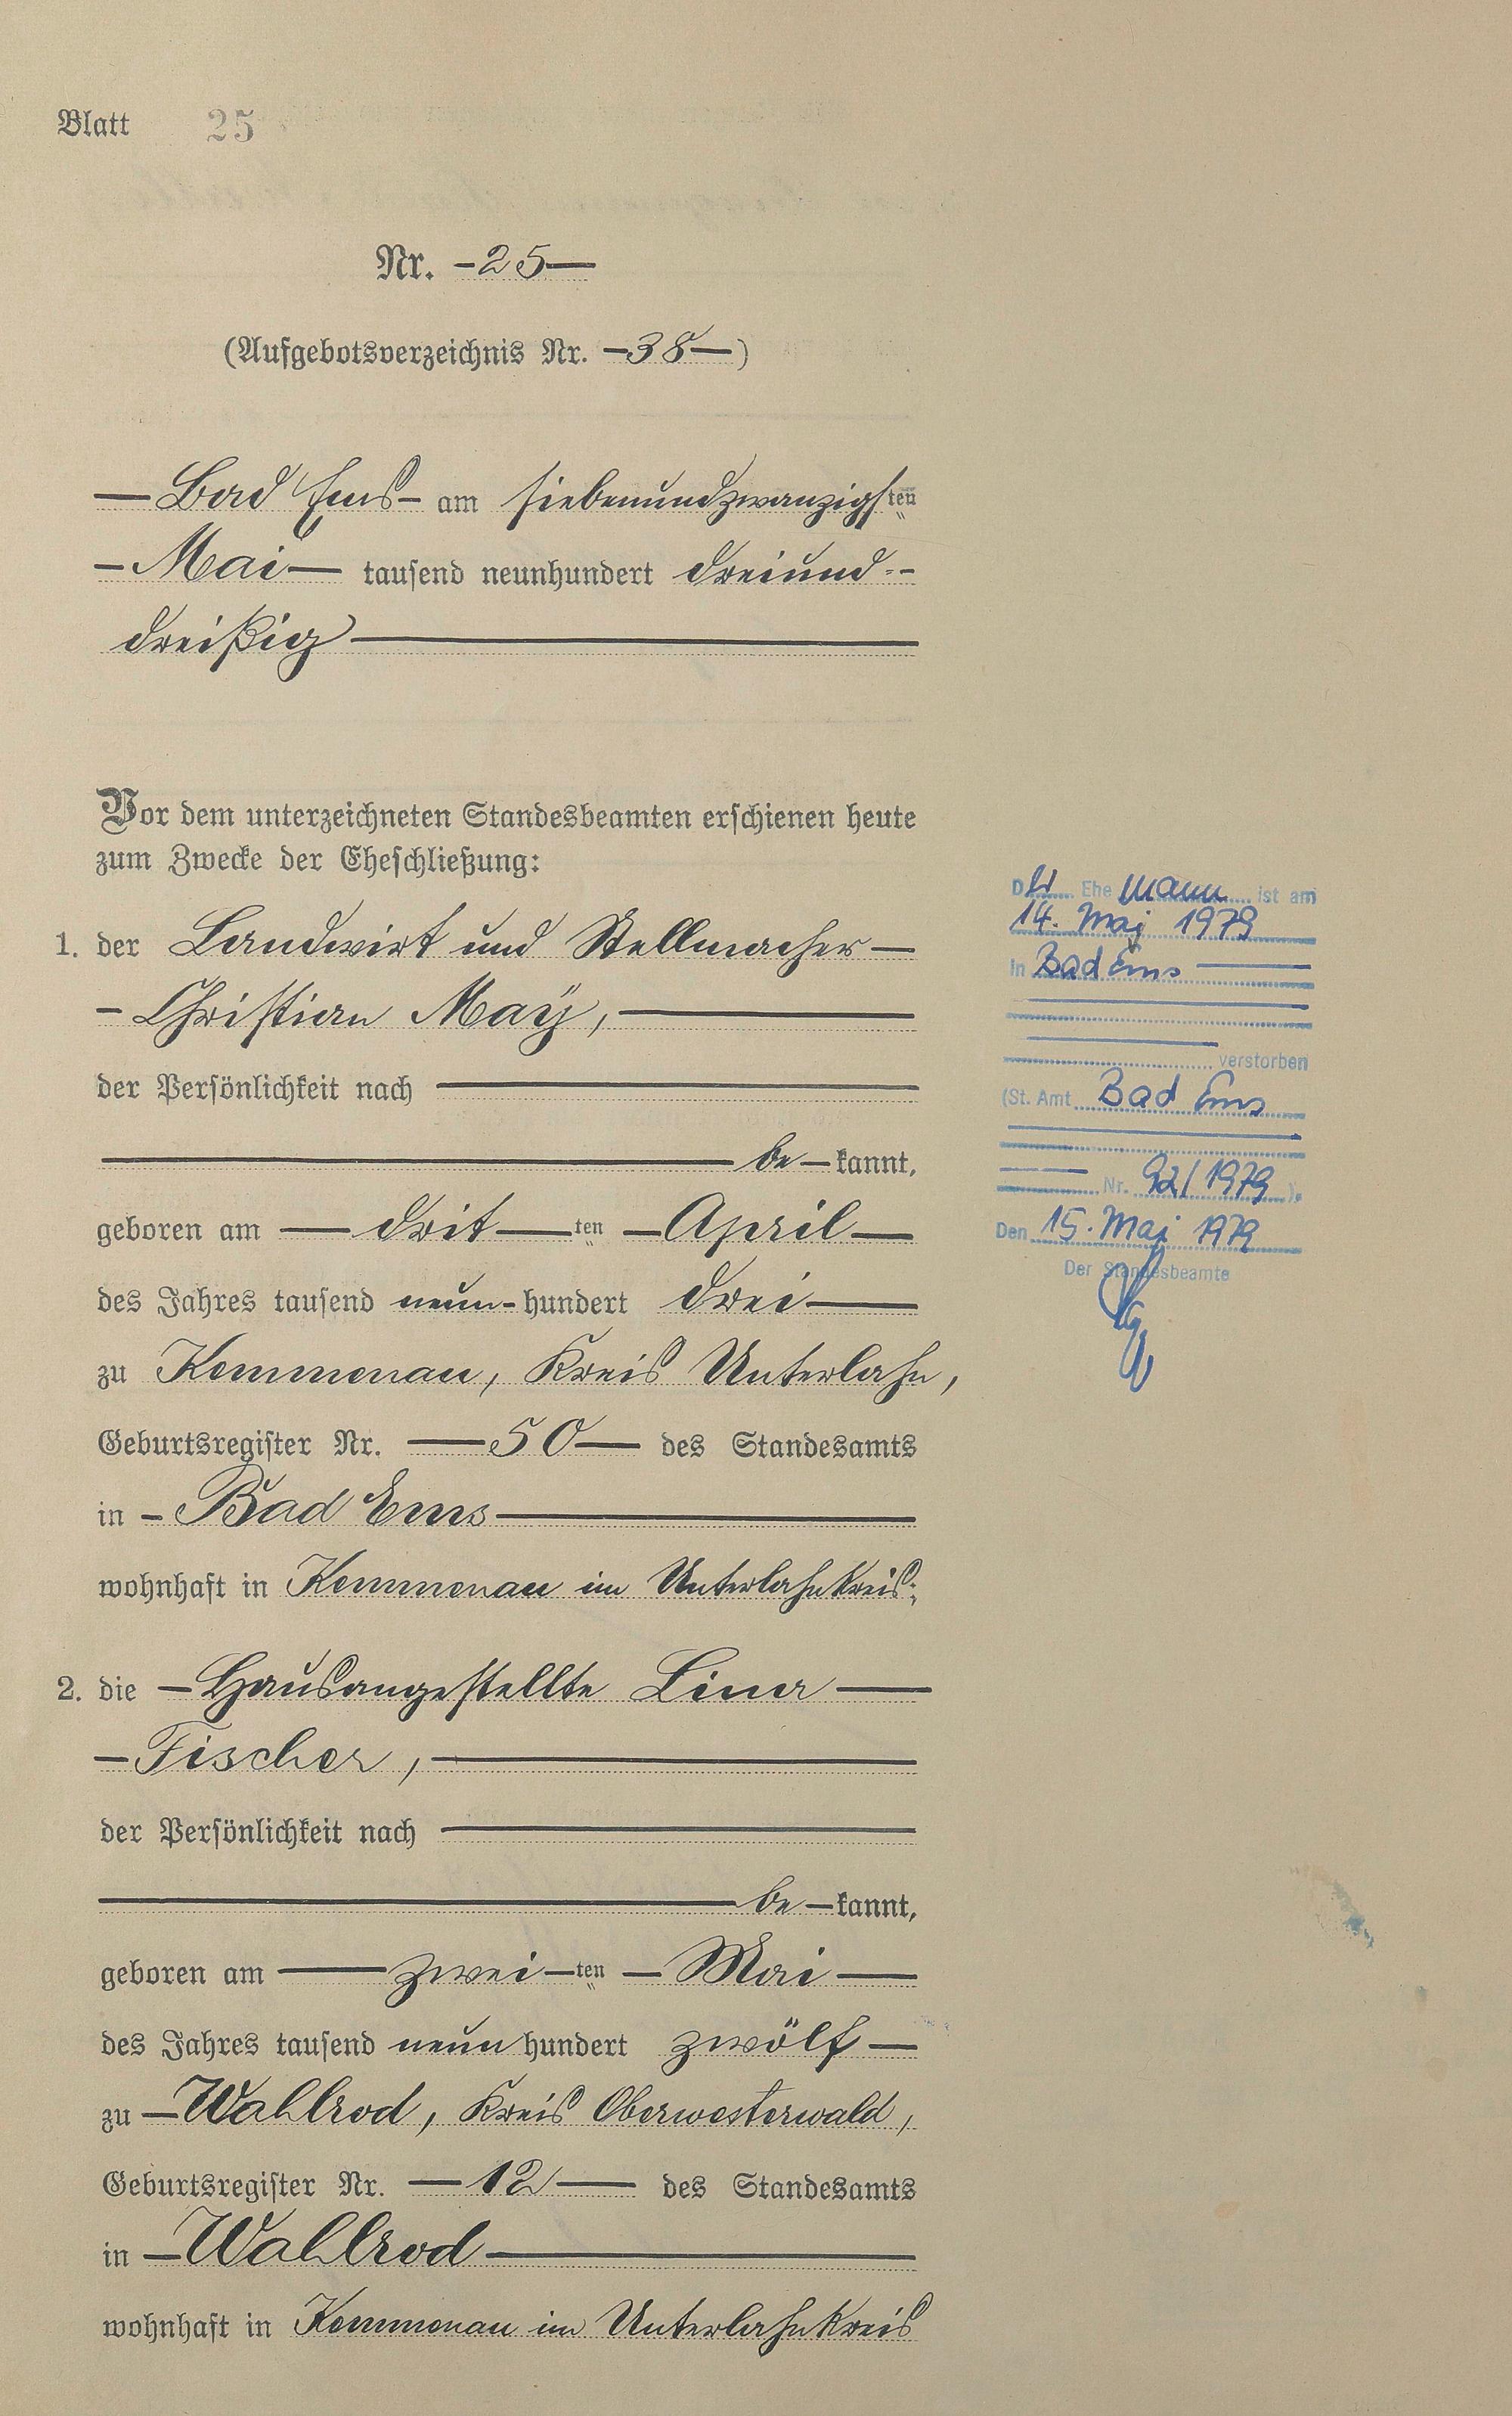 Blatt 25
Nr. -25-
(Aufgebotsverzeichnis Nr. -38-)
- Bad Ems - am siebenundzwanzigsten
- Mai - tausend neunhundert dreiund=-
dreißig -
Vor dem unterzeichneten Standesbeamten erschienen heute
zum Zwecke der Eheschließung:
1. der Landwirt und Stellmacher -
- Christian Maÿ, -
der Persönlichkeit nach -
- be - kannt,
geboren am - drit - ten - April -
des Jahres tausend neun - hundert drei -
zu Kemmenau, Kreis Unterlahn,
Geburtsregister Nr. - 50 - des Standesamts
in - Bad Ems -
wohnhaft in Kemmenau im Unterlahnkreis;
2. die - Hausangestellte Lina -
- Fischer, -
der Persönlichkeit nach -
- be - kannt,
geboren am - zwei - ten - Mai -
des Jahres tausend neun hundert zwölf -
zu - Wahlrod, Kreis Oberwesterwald,
Geburtsregister Nr. - 12 - des Standesamts
in - Wahlrod -
wohnhaft in Kemmenau im Unterlahnkreis
Der Ehemann ist am
14. Mai 1979
in Bad Ems -
verstorben
(St. Amt Bad Ems
Nr. 92/1979).
Den 15. Mai 1979
Der Standesbeamte